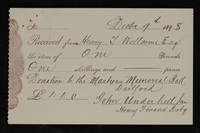 Decbr 9th 1898
Received from Henry S. Wellcome Esqr
the sum of One Pounds
One shillings and pence
Donation to the Martyrs Memorial Hall
Dartford
£ 1.1.0
John Underhill Jun
Honry Financl Secty